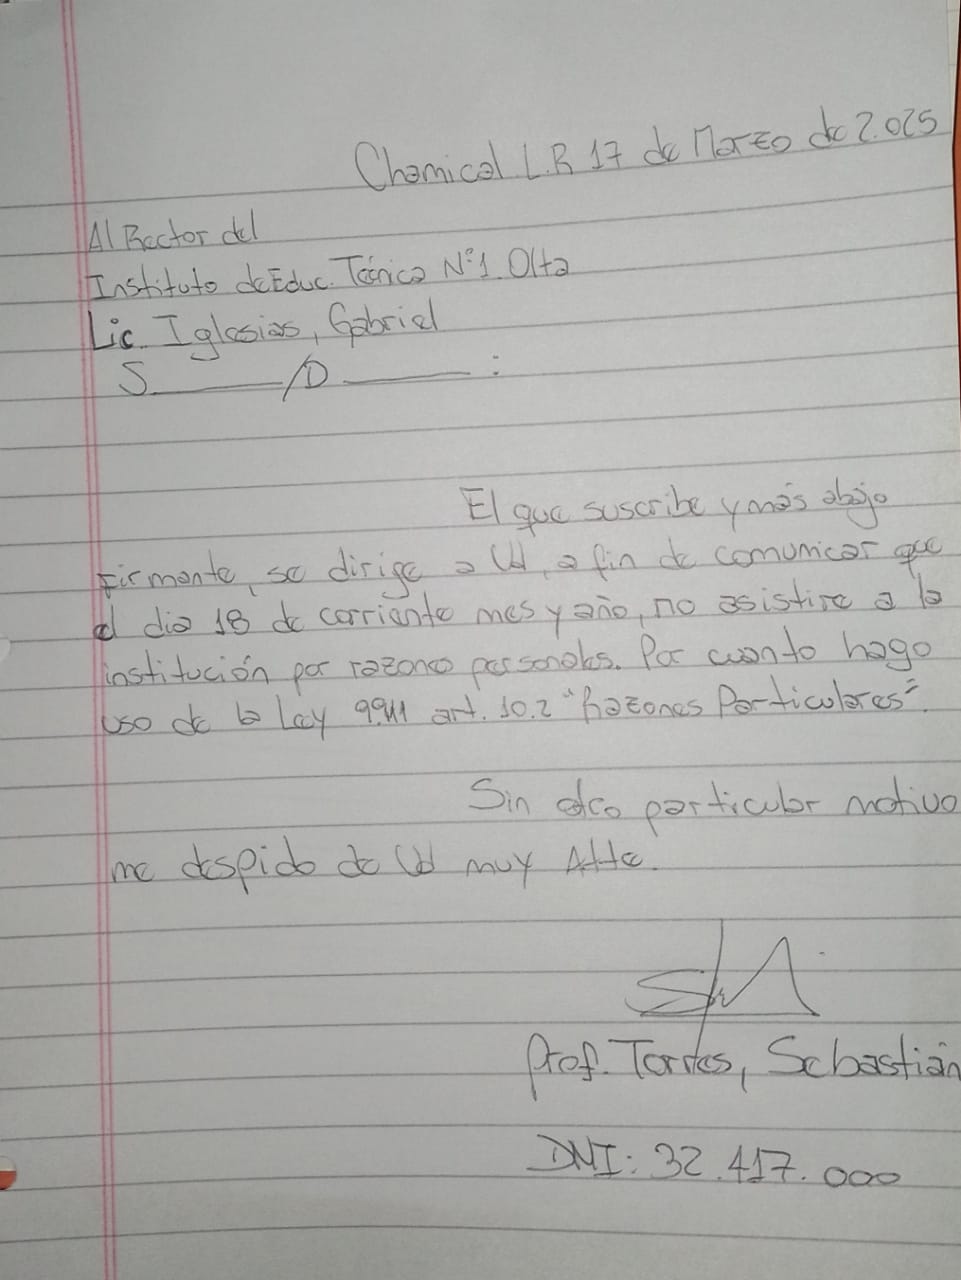 Chamical L.R 17 de Marzo de 2.025
Al Rector del
Instituto de Educ. Técnica N°1 Olta
Lic. Iglesias, Gabriel
S______/D______:
El que suscribe y más abajo
firmante, se dirige a Ud, a fin de comunicar que
el dia 18 de corriente mes y año, no asistire a la
institución por razones personales. Por cuanto hago
uso de la Ley 9911 art. 10.2 "Razones Particulares".
Sin otro particular motivo
me despido de Ud muy Atte.
Prof. Torres, Sebastián
DNI: 32.417.000